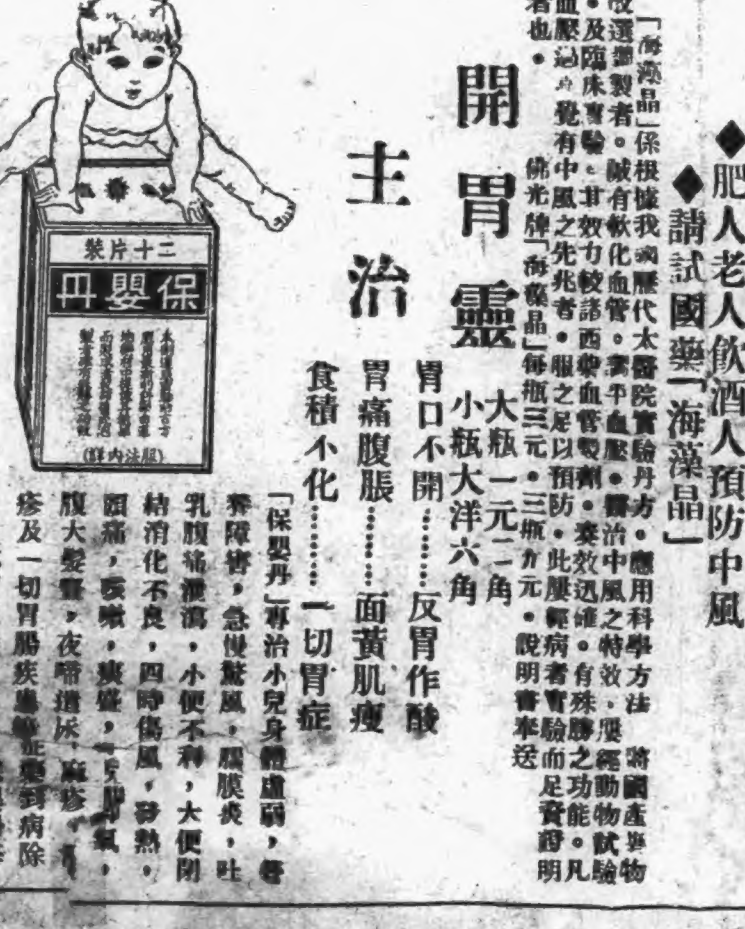 ◆肥人老人飲酒人預防中風
◆請試國藥「海藻晶」
「海藻晶」係根據我國歷代太醫院實驗丹方。應用科學方法 將國產物
選製者。誠有軟化血管。調平血壓。醫治中風之特效。屢經動物試驗
。及臨床實驗。其效力較諸西藥血管製劑。奏效迅確。有殊勝之功能。凡
血壓過覺有中風之先兆者。服之足以預防。此屢經病者實驗而足資證明
者也。
佛光牌「海藻晶」每瓶三元。三瓶九元。說明書奉送
開胃靈
大瓶一元二角
小瓶大洋六角
主治
胃口不開………反胃作酸
胃痛腹脹………面黃肌瘦
食積不化………一切胃症
「保嬰丹」專治小兒身體虛弱,營
養障害,急慢驚風,腦膜炎,吐
乳腹痛泄瀉,小便不利,大便閉
結消化不良,四時傷風,發熱,
頭痛,咳嗽,痰盛,氣,
腹大髮豎,夜啼遺尿,麻疹,
疹及一切胃腸疾患到病除
二十片裝
保嬰丹
(服法內詳)